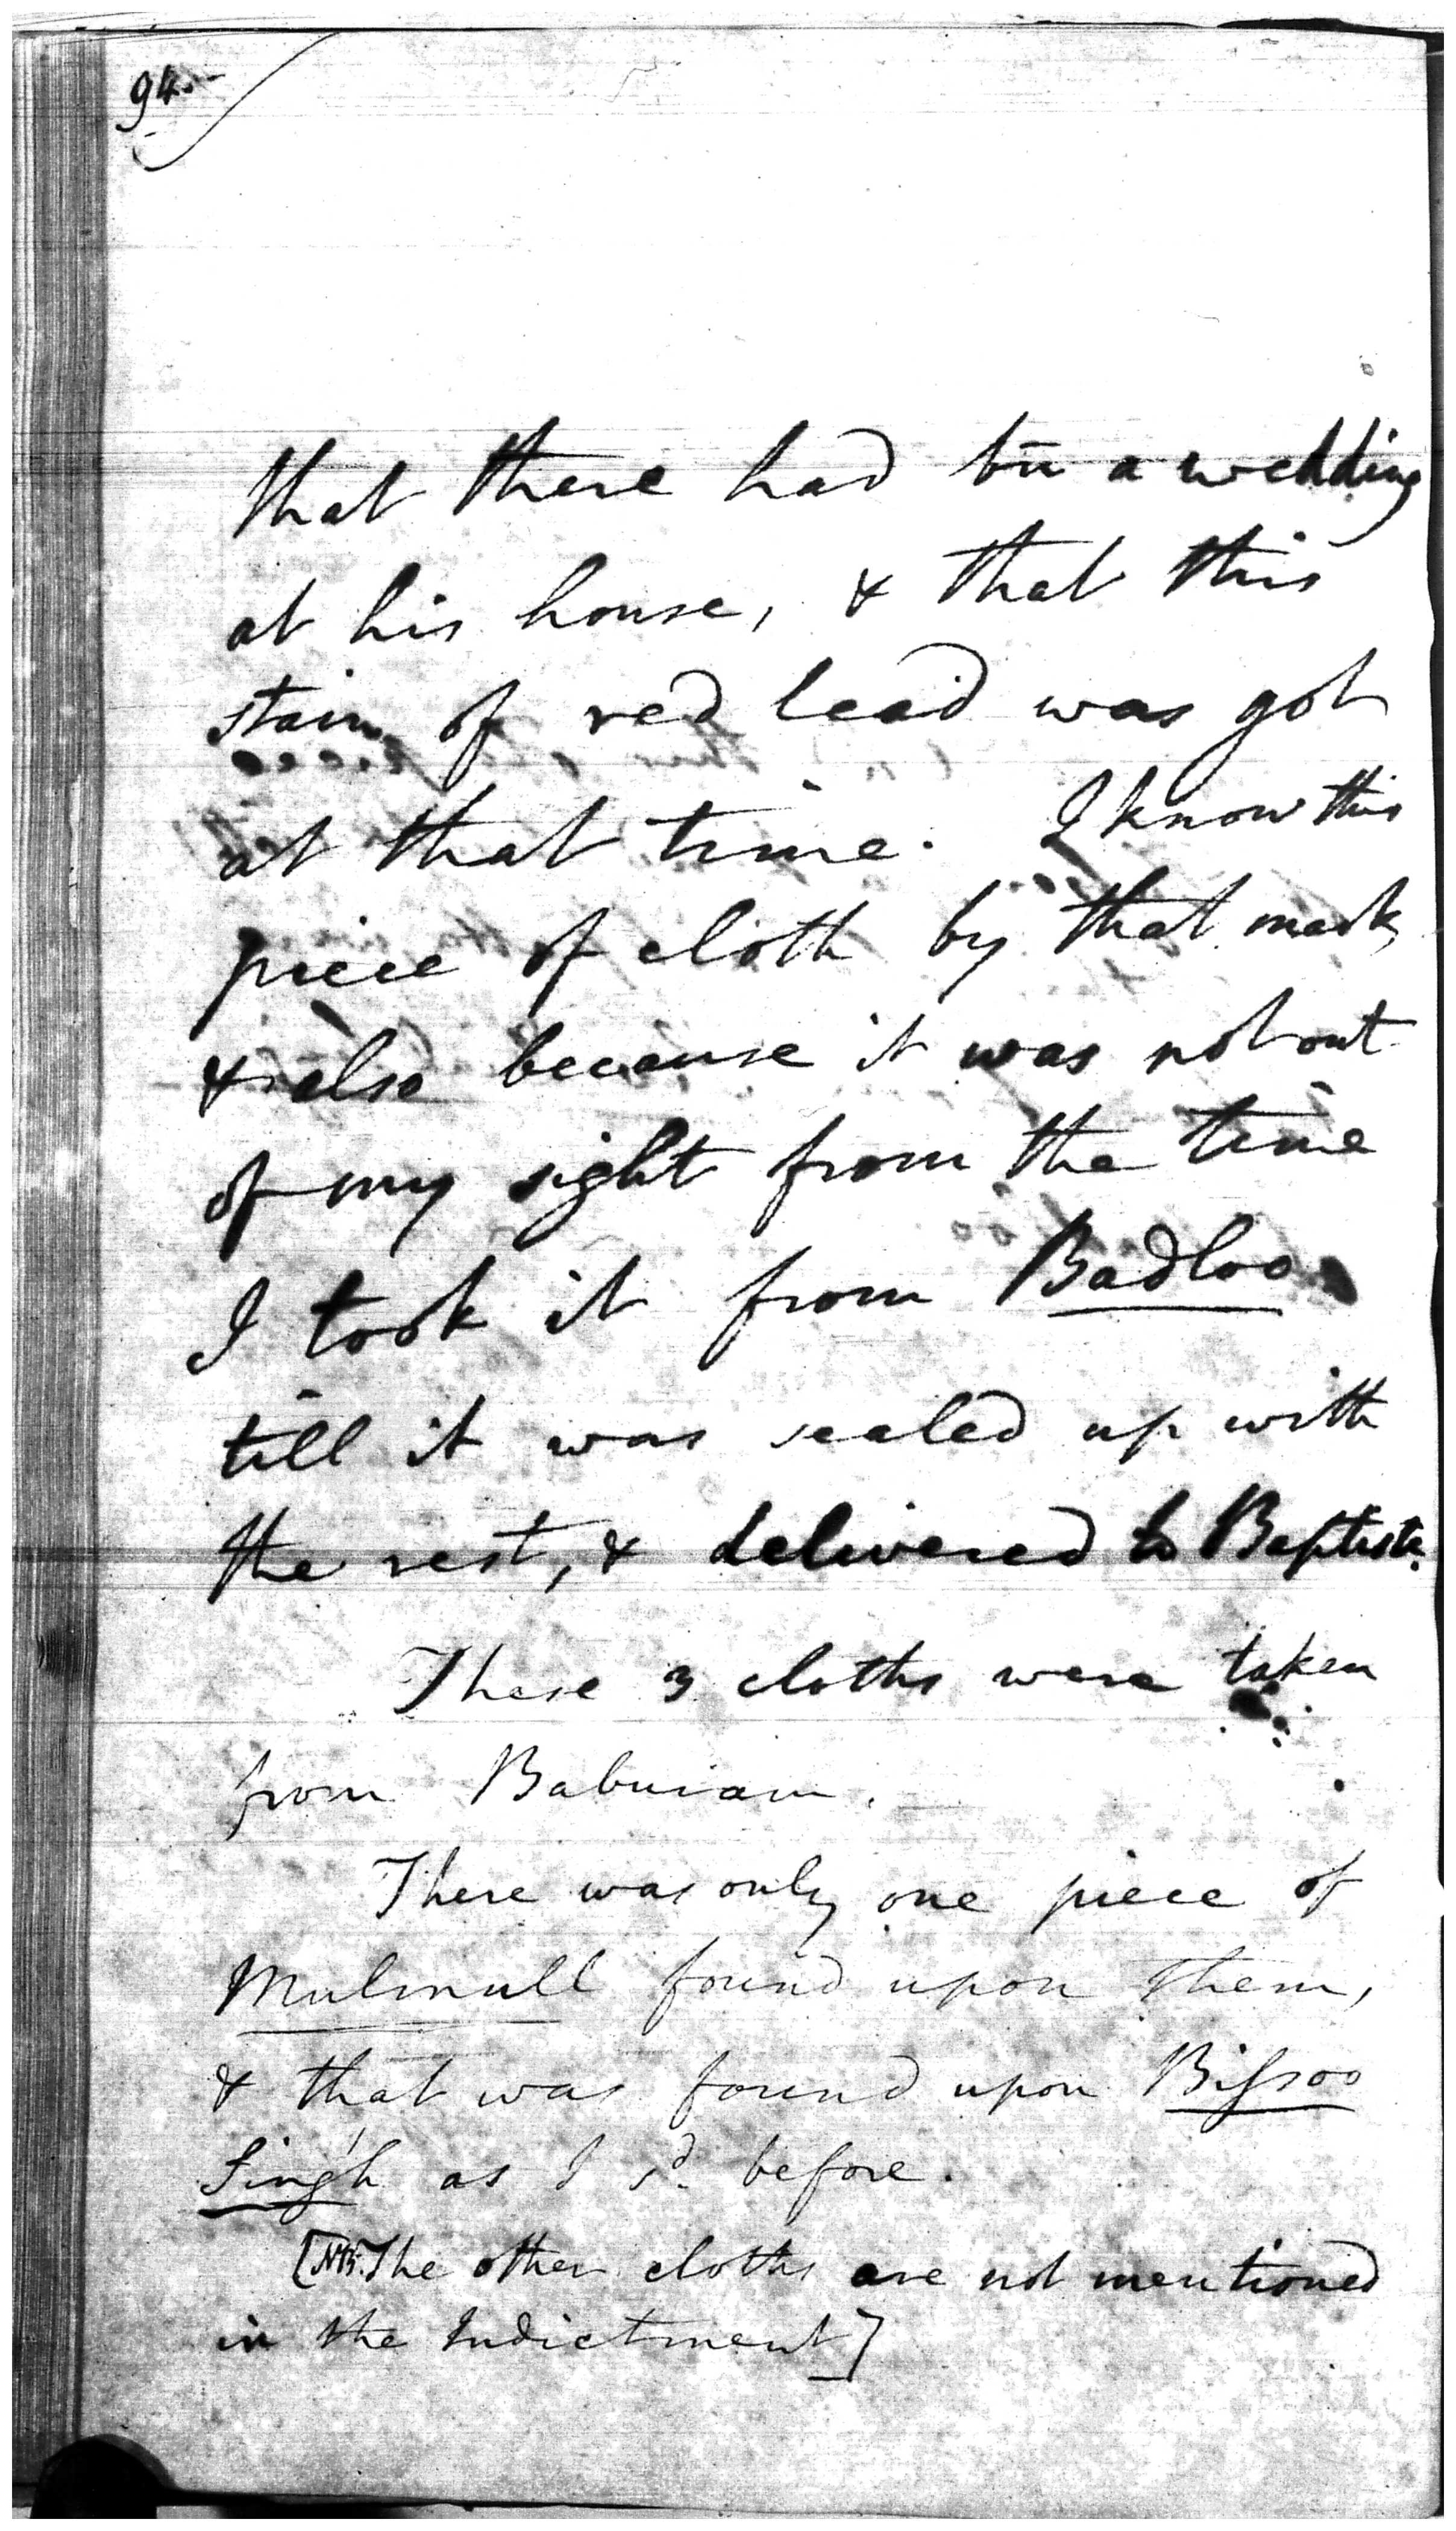 94
that there had bn̄ a wedding
at his house, & that this
stain of red lead was got
at that time. I know this
piece of cloth by that mark,
& also because it was not out
of my sight from the time
I took it from Badloo
till it was sealed up with
the rest, & delivered to Baptiste.
These 3 cloths were taken
from Baburam.
There was only one piece of
Mulmull found upon them,
& that was found upon Bifsoo
Singh as I sd before.
[NB. The other cloths are not mentioned
in the Indictment]